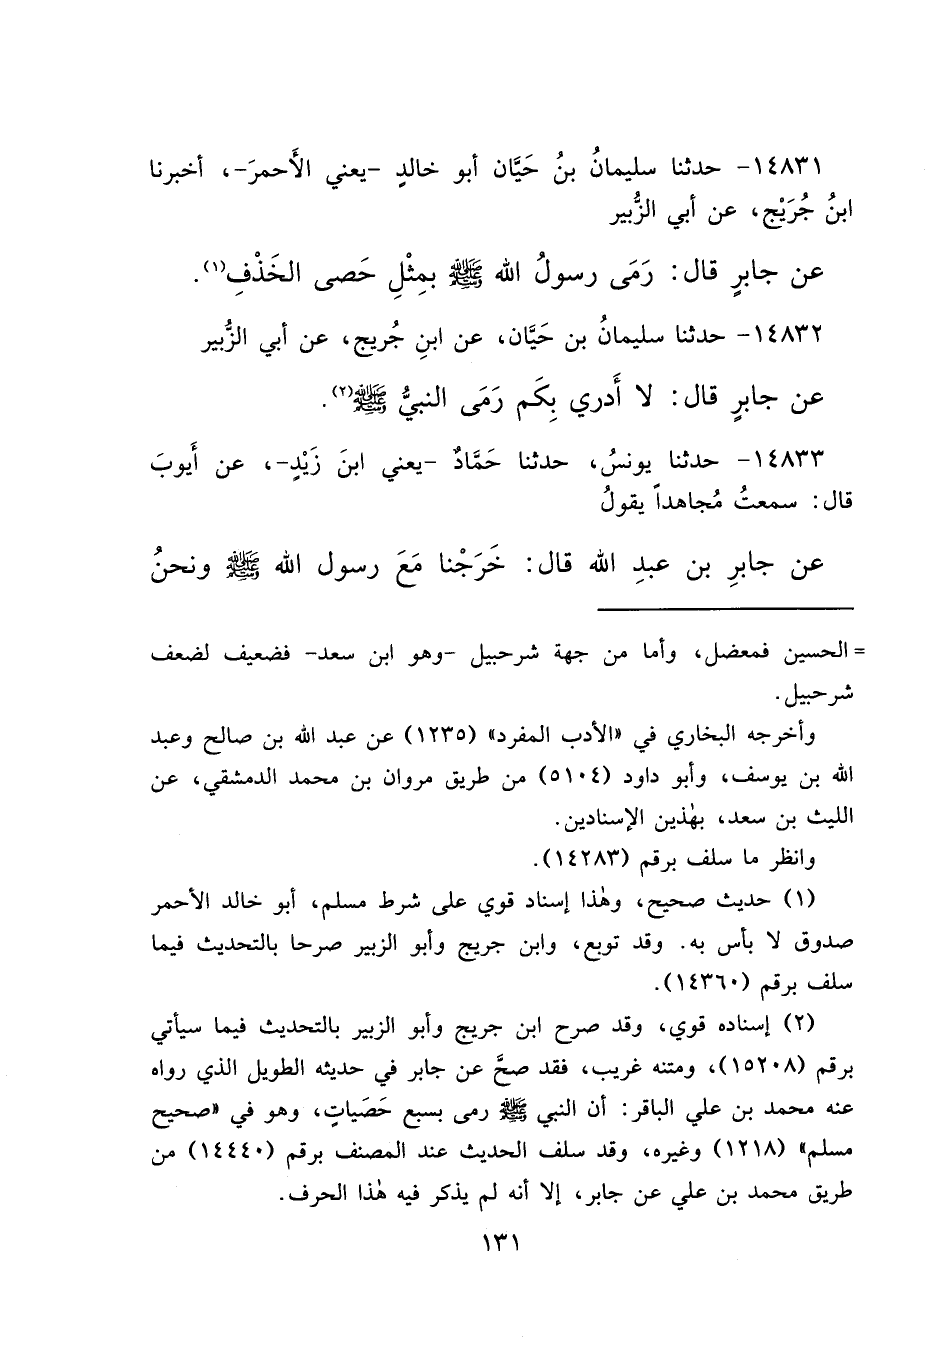 ١٤٨٣١- حدثنا سليمانُ بنُ حَيَّان أبو خالدٍ -يعني الأَحمرَ-، أخبرنا
ابنُ جُرَيْج، عن أبي الزُّبير
عن جابرٍ قال: رَمَى رسولُ الله ﷺ بمِثْلِ حَصى الخَذْفِ(١).
١٤٨٣٢- حدثنا سليمانُ بن حَيَّان، عن ابنِ جُريج، عن أبي الزُّبير
عن جابرٍ قال: لا أَدري بِكَم رَمَى النبيُّ ﷺ(٢).
١٤٨٣٣- حدثنا يونسُ، حدثنا حَمَّادٌ -يعني ابنَ زَيْدٍ-، عن أَيوبَ
قال: سمعتُ مُجاهداً يقولُ
عن جابرِ بن عبدِ الله قال: خَرَجْنا مَعَ رسول الله ﷺ ونحنُ
= الحسين فمعضل، وأما من جهة شرحبيل -وهو ابن سعد- فضعيف لضعف
شرحبيل.
وأخرجه البخاري في «الأدب المفرد» (١٢٣٥) عن عبد الله بن صالح وعبد
الله بن يوسف، وأبو داود (٥١٠٤) من طريق مروان بن محمد الدمشقي، عن
الليث بن سعد، بهٰذين الإسنادين.
وانظر ما سلف برقم (١٤٢٨٣).
(١) حديث صحيح، وهٰذا إسناد قوي على شرط مسلم، أبو خالد الأحمر
صدوق لا بأس به. وقد توبع، وابن جريج وأبو الزبير صرحا بالتحديث فيما
سلف برقم (١٤٣٦٠).
(٢) إسناده قوي، وقد صرح ابن جريج وأبو الزبير بالتحديث فيما سيأتي
برقم (١٥٢٠٨)، ومتنه غريب، فقد صحَّ عن جابر في حديثه الطويل الذي رواه
عنه محمد بن علي الباقر: أن النبي ﷺ رمى بسبع حَصَياتٍ، وهو في «صحيح
مسلم» (١٢١٨) وغيره، وقد سلف الحديث عند المصنف برقم (١٤٤٤٠) من
طريق محمد بن علي عن جابر، إلا أنه لم يذكر فيه هٰذا الحرف.
١٣١